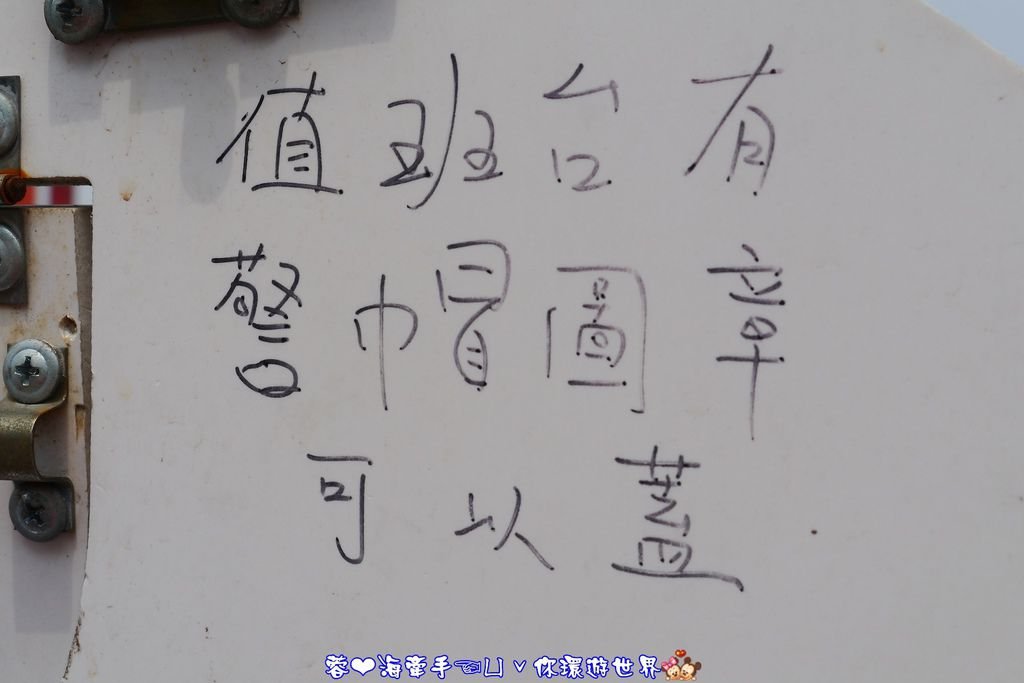 值班台有
警帽圖章
可以蓋
蓉❤海牽手☜ㄩˇ你環遊世界